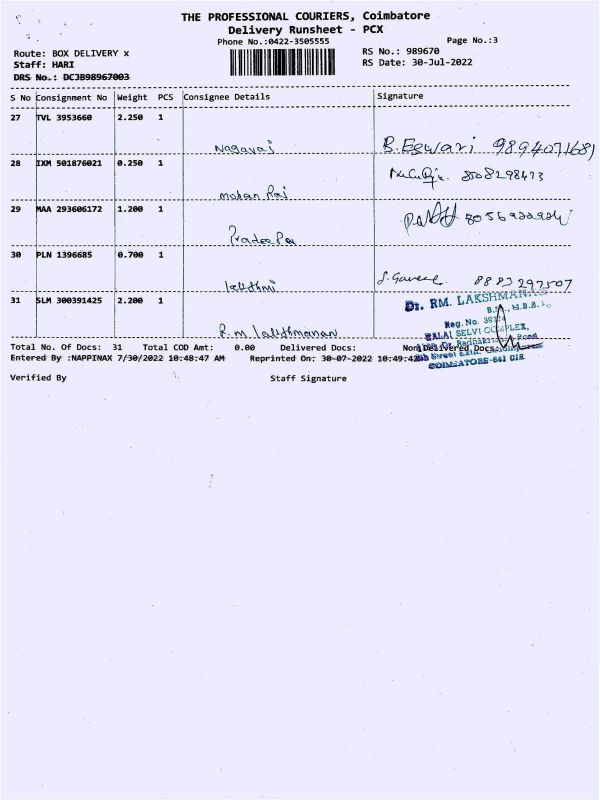 THE PROFESSIONAL COURIERS, Coimbatore
Delivery Runsheet - PCX
Phone No.:0422-3505555
Page No.:3
Route: BOX DELIVERY x
RS No.: 989670
Staff: HARI
RS Date: 30-Jul-2022
DRS No.: DCJB98967003
S No Consignment No Weight PCS Consignee Details Signature
27 TVL 3953660 2.250 1
Nagaraj B. Eswari 9894071681
28 IXM 501876021 0.250 1
8508298473
mohan Raj
29 MAA 293606172 1.200 1
Pradeepa
30 PLN 1396685 0.700 1
lalithmi 8883297507
31 SLM 300391425 2.200 1
Dr. RM. LAKSHMAN
Reg. No.
BALAI SELVI COMPLEX,
R.m lakshmanan
Total No. Of Docs: 31 Total COD Amt: 0.00 Delivered Docs: Non Delivered Docs:
Entered By :NAPPINAX 7/30/2022 10:48:47 AM Reprinted On: 30-07-2022 10:49:42
COIMBATORE-641 018
Verified By Staff Signature